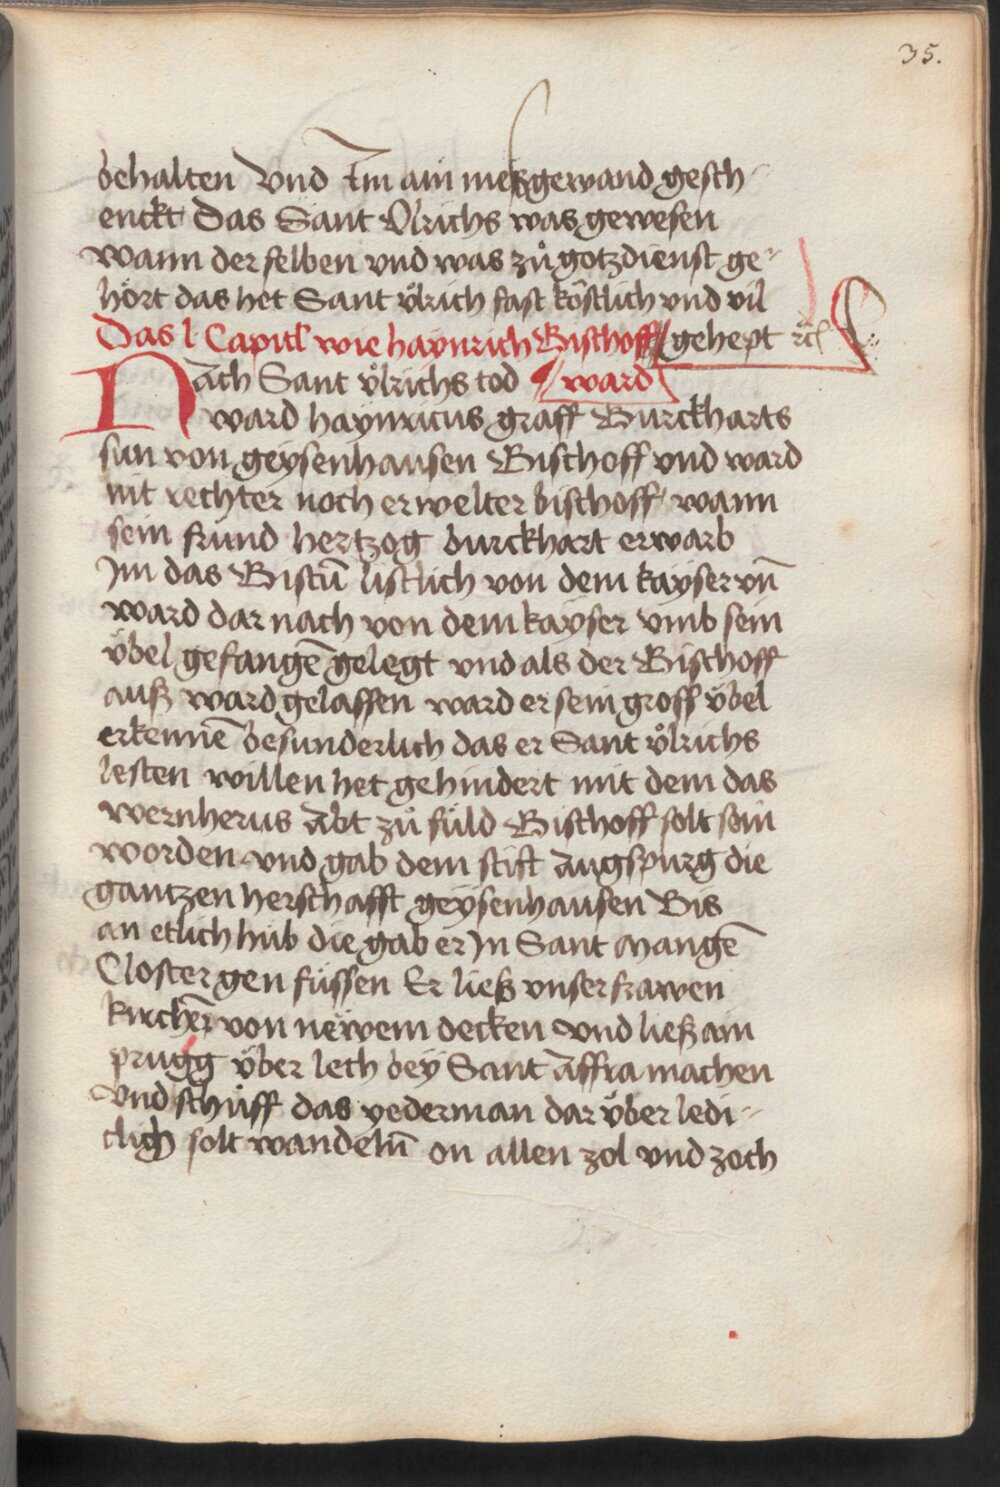 35.
behalten Vnd Im ain meßgewand gesch-
enckt Das Sant Vlrichs was gewesen
wann der selben vnd was zů gotzdienst ge-
hört das het Sant vͦlrich fast köstlich vnd vil
gehept ꝛc
Das l Capitl wie haynrich Bischoff
ward
Nach Sant vͦlrichs tod
ward haynricus graff Burckharts
sun von geysenhausen Bischoff vnd ward
nit rechter noch erwelter bischoff wann
sein fründ hertzog burckhart erwarb
Im das Bistū listlich von dem kayser vn̄
ward dar nach von dem kayser vmb sein
übel gefangē gelegt vnd als der Bischoff
auß ward gelassen ward er sein groß übel
erkennē besunderlich das er Sant vͦlrichs
lesten willen het gehindert mit dem das
wernherus Abt zů fuld Bischoff solt sein
worden vnd gab dem stift Augspurg die
gantzen herschafft geysenhausen Bis
an etlich hůb die gab er In Sant Mangē
Closter gen füssen Er ließ vnser frawen
kirchen von newem decken vnd ließ ain
prugg vͤber lech bey Sant Affra machen
vnd schůff das yederman dar vͤber ledi-
clich solt wandeln̄ on allen zol vnd zoch